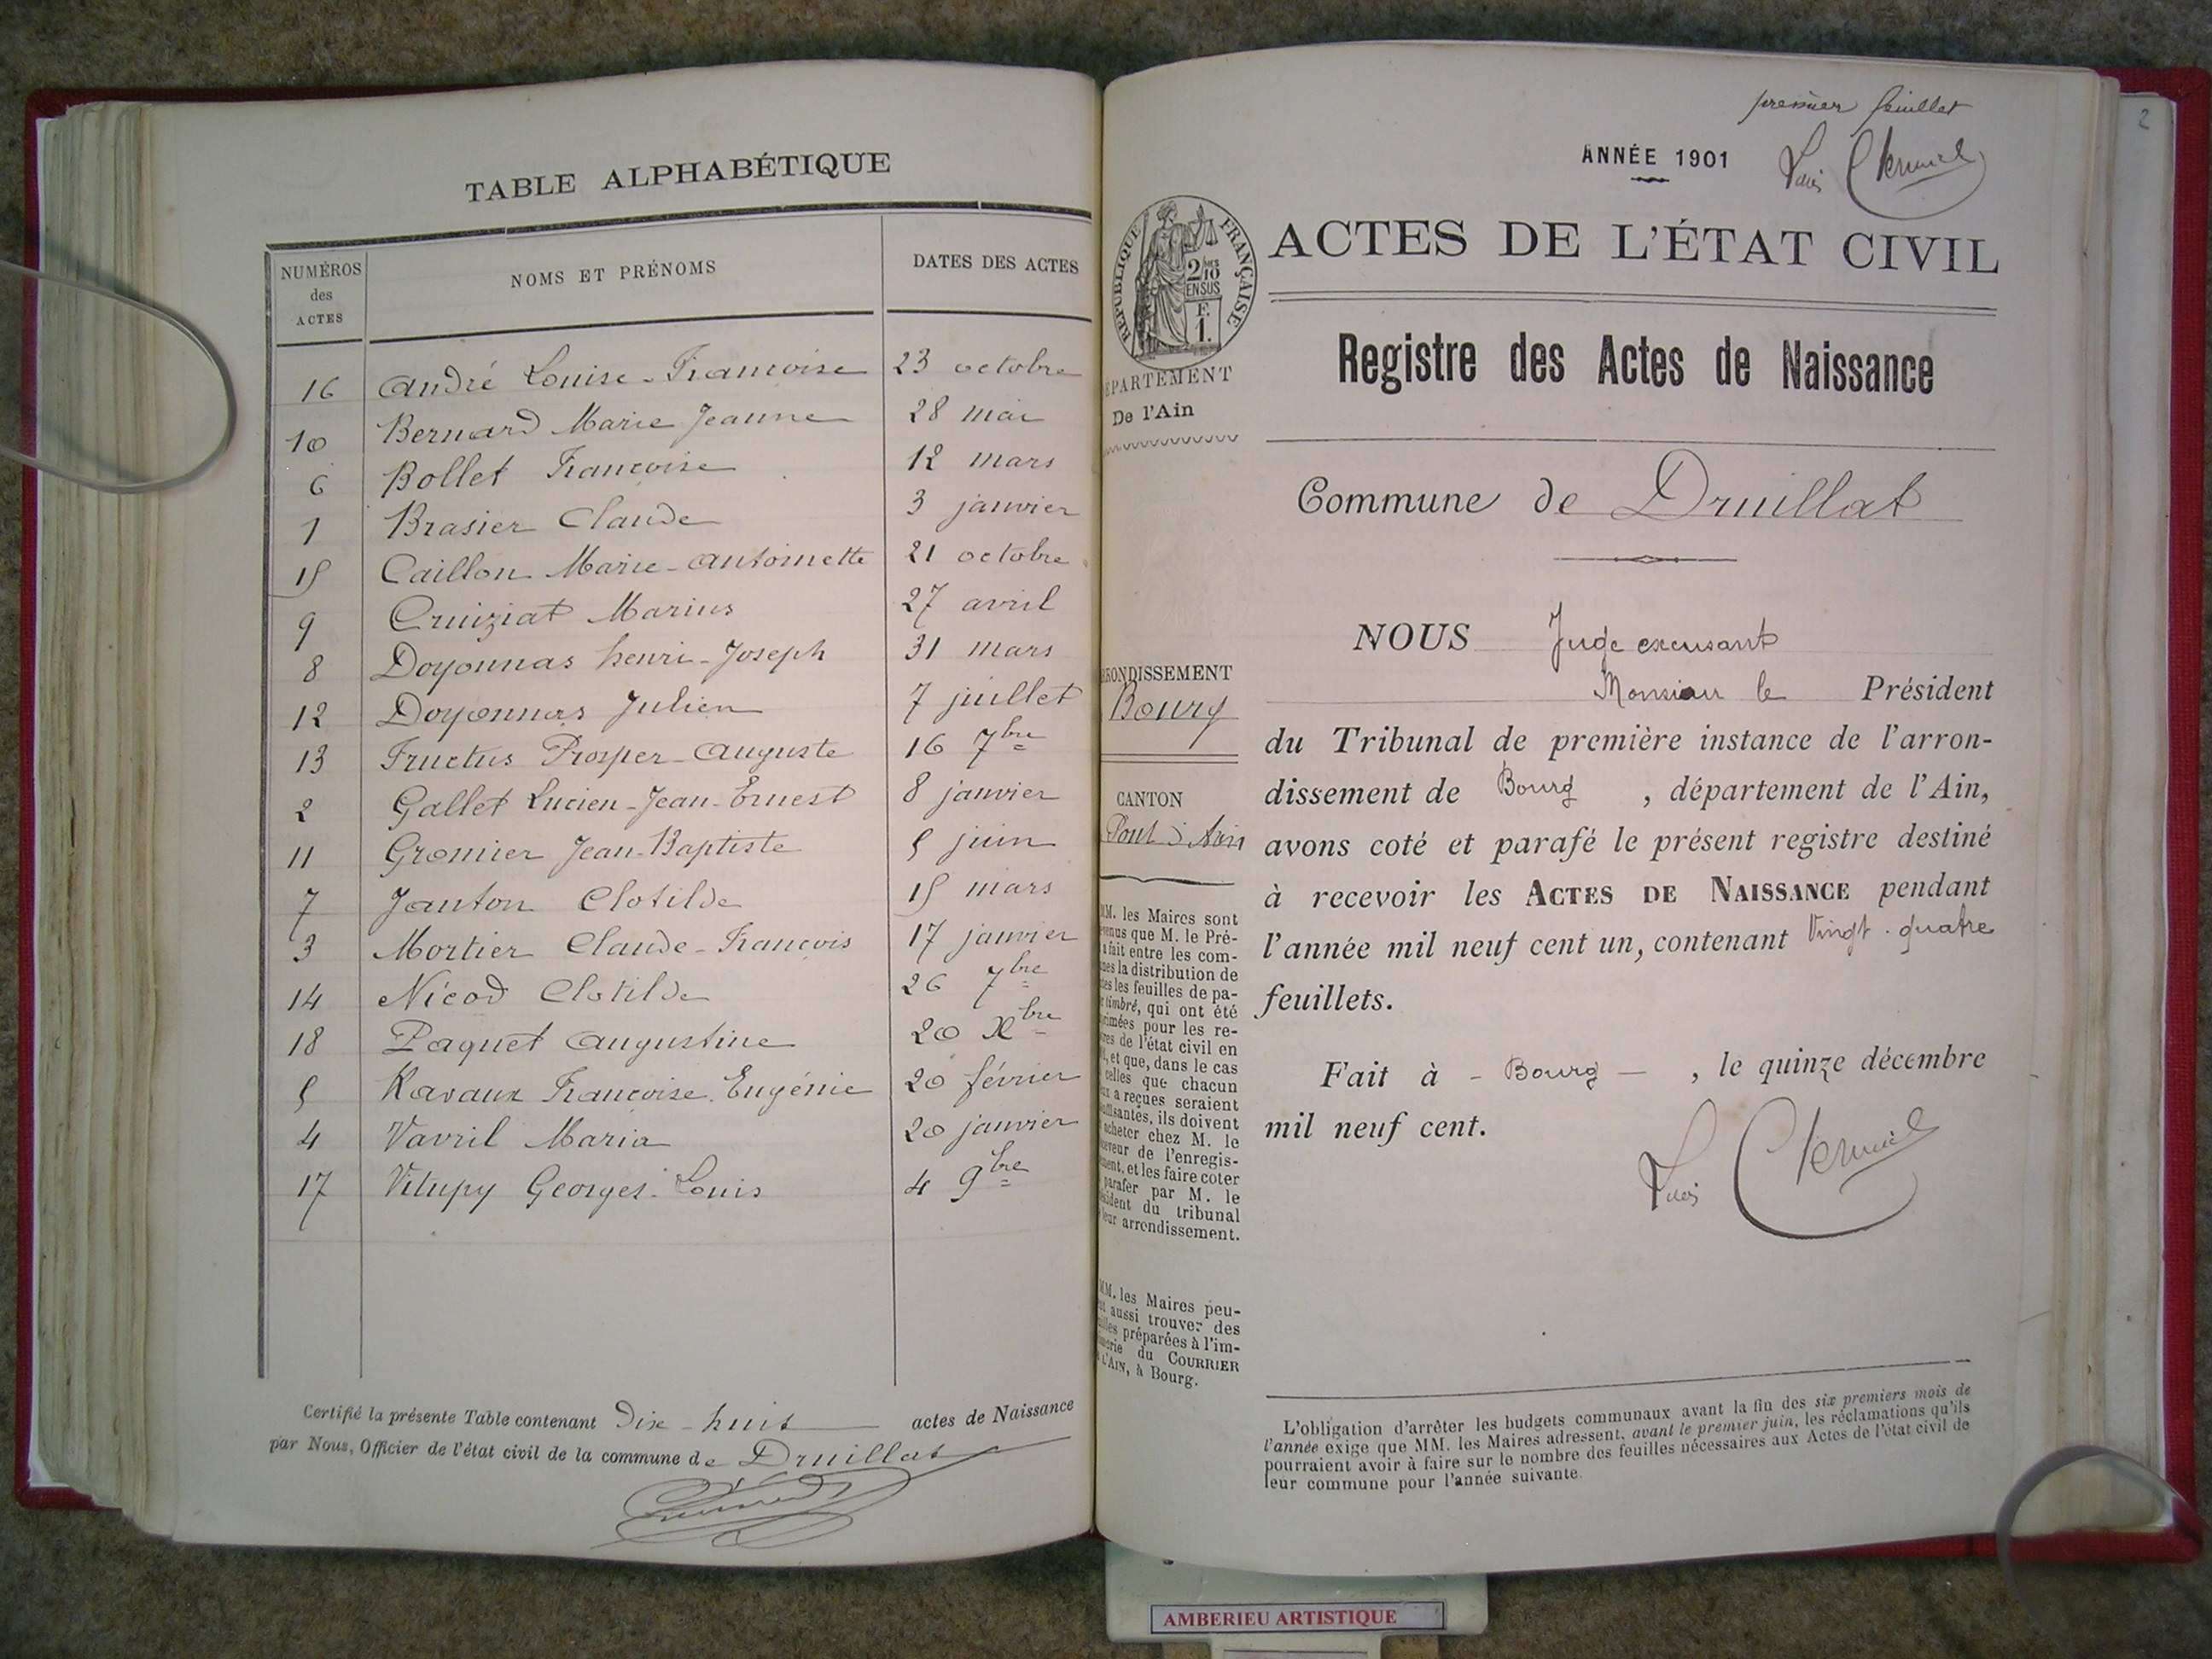 TABLE ALPHABÉTIQUE
NUMÉROS des ACTES
NOMS ET PRÉNOMS
DATES DES ACTES
16 André Louise-Francoise 23 octobre
10 Bernard Marie Jeanne 28 mai
6 Bollet Francoise 12 mars
1 Brasier Claude 3 janvier
15 Caillon Marie-Antoinette 21 octobre
9 Cruiziat Marius 27 avril
8 Doyonnas henri-Joseph 31 mars
12 Doyonnas Julien 7 juillet
13 Fructus Prosper-Auguste 16 7bre
2 Gallet Lucien-Jean-Ernest 8 janvier
11 Gromier Jean-Baptiste 5 juin
7 Janton Clotilde 15 mars
3 Mortier Claude-Francois 17 janvier
14 Nicod Clotilde 26 7bre
18 Paquet Augustine 20 Xbre
5 Ravaux Francoise Eugénie 20 février
4 Vavril Maria 20 janvier
17 Vitupy Georges-Louis 4 9bre
Certifié la présente Table contenant Dix-huit actes de Naissance
par Nous, Officier de l'état civil de la commune de Druillat
premier feuillet
2
ANNÉE 1901
RÉPUBLIQUE FRANÇAISE
2/10
EN SUS
F.
1.
ACTES DE L'ÉTAT CIVIL
Registre des Actes de Naissance
ÉPARTEMENT
De l'Ain
Commune de Druillat
RONDISSEMENT
Bourg
CANTON
Pont d'Ain
NOUS Juge excusant
Monsieur le Président
du Tribunal de première instance de l'arron-
dissement de Bourg , département de l'Ain,
avons coté et parafé le présent registre destiné
à recevoir les ACTES DE NAISSANCE pendant
l'année mil neuf cent un, contenant Vingt-quatre
feuillets.
Fait à - Bourg - , le quinze décembre
mil neuf cent.
MM. les Maires sont
venus que M. le Pré-
a fait entre les com-
nes la distribution de
tes les feuilles de pa-
timbré, qui ont été
primées pour les re-
res de l'état civil en
et que, dans le cas
celles que chacun
a reçues seraient
uffisantes, ils doivent
acheter chez M. le
ceveur de l'enregis-
ment, et les faire coter
parafer par M. le
ésident du tribunal
leur arrondissement.
MM. les Maires peu-
aussi trouver des
illes préparées à l'im-
merie du COURRIER
L'AIN, à Bourg.
L'obligation d'arrêter les budgets communaux avant la fin des six premiers mois de
l'année exige que MM. les Maires adressent, avant le premier juin, les réclamations qu'ils
pourraient avoir à faire sur le nombre des feuilles nécessaires aux Actes de l'état civil de
leur commune pour l'année suivante.
AMBERIEU ARTISTIQUE